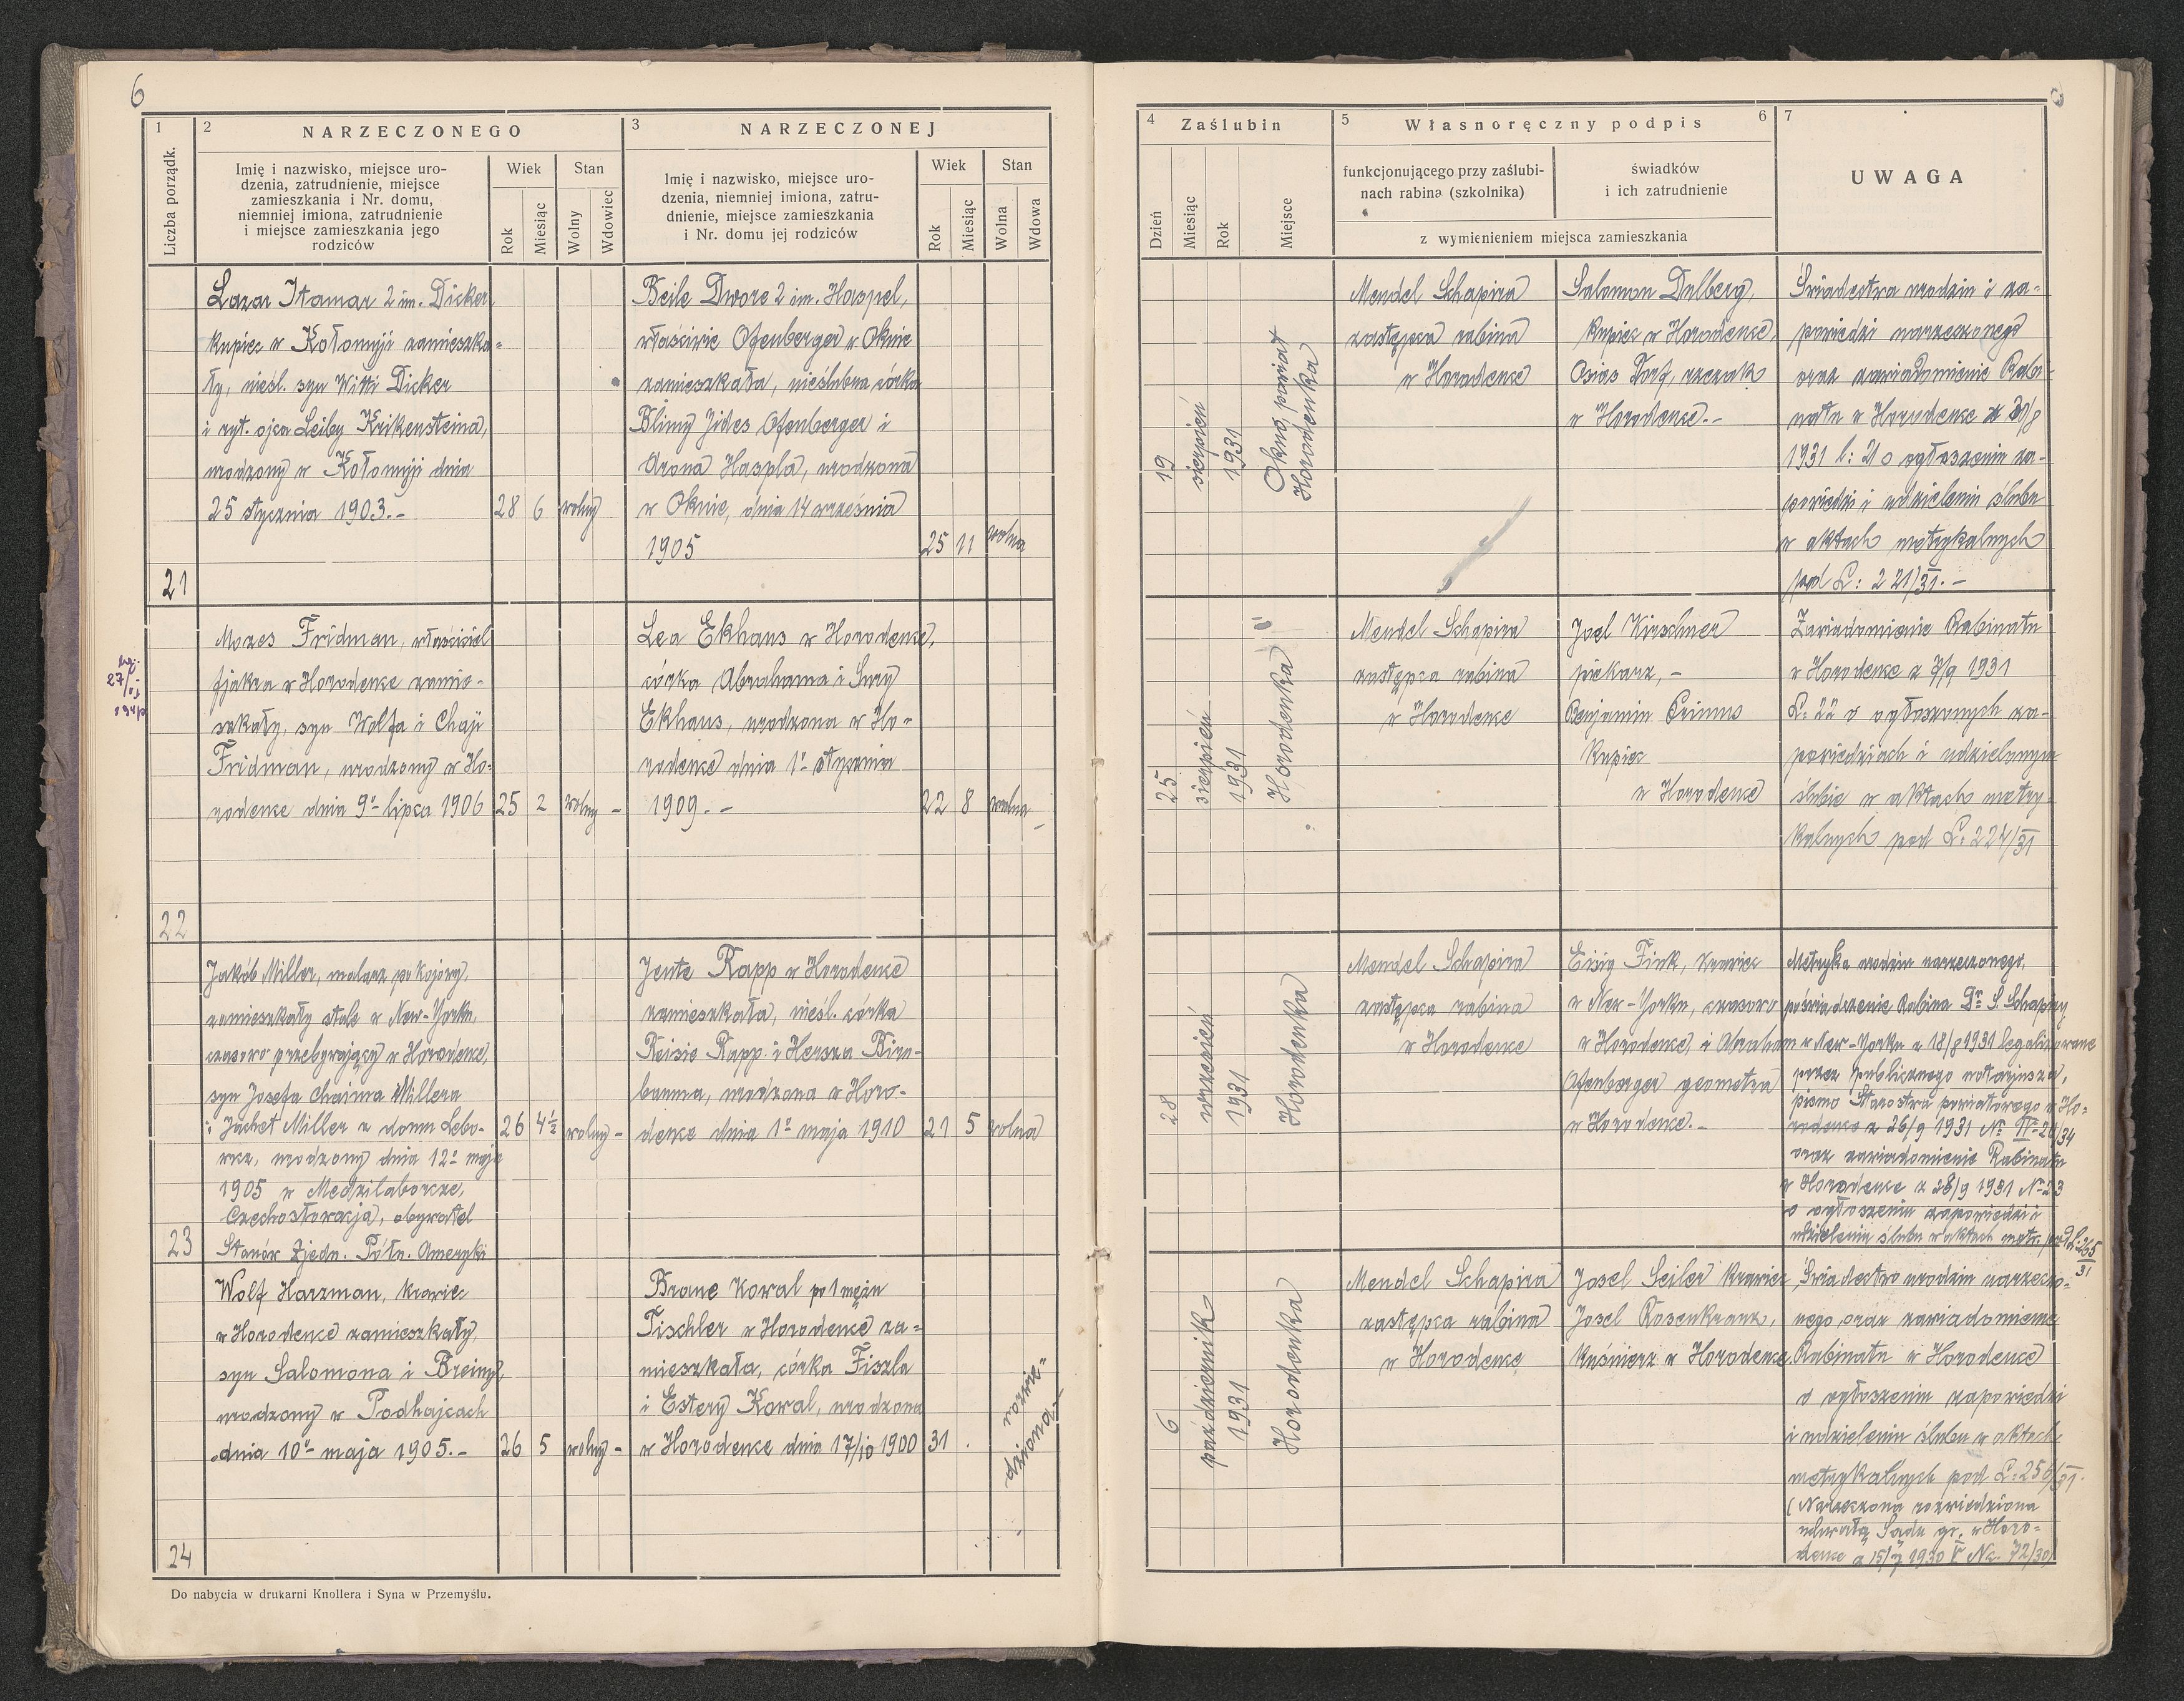 6
1
2
NARZECZONEGO
3
NARZECZONEJ
Liczba porządk.
Imię i nazwisko, miejsce uro-
dzenia, zatrudnienie, miejsce
zamieszkania i Nr. domu,
niemniej imiona, zatrudnienie
i miejsce zamieszkania jego
rodziców
Wiek
Stan
Rok
Miesiąc
Wolny
Wdowiec
Imię i nazwisko, miejsce uro-
dzenia, niemniej imiona, zatru-
dnienie, miejsce zamieszkania
i Nr. domu jej rodziców
Wiek
Stan
Rok
Miesiąc
Wolna
Wdowa
4
Zaślubin
5
Własnoręczny podpis
6
7
Dzień
Miesiąc
Rok
Miejsce
funkcjonującego przy zaślubi-
nach rabina (szkolnika)
świadków
i ich zatrudnienie
z wymienieniem miejsca zamieszkania
UWAGA
21
Lazar Itamar 2 im. Dicker,
kupiec w Kołomyji zamieszka-
ły, nieśl. syn Witti Dicker
i ryt. ojca Leiby Krikensteina,
urodzony w Kołomyji dnia
25 stycznia 1903.-
28
6
wolny
Beile Dwore 2 im. Haspel,
właściwie Ofenberger w Oknie
zamieszkała, nieślubna córka
Blimy Jides Ofenberger i
Arona Haspla, urodzona
w Oknie, dnia 14 września
1905
25
11
wolna
19
sierpień
1931
Okno, powiat
Horodenka
Mendel Schapira
zastępca rabina
w Horodence
Salomon Dulberg,
kupiec w Horodence,
Osias Torf, rzezak
w Horodence.-
Świadectwa urodzin i za-
powiedzi narzeczonego
oraz zawiadomienie Rabi-
natu w Horodence z
1931 l: 21 o ogłoszeniu za-
powiedzi i udzieleniu ślubu
w aktach metrykalnych
pod L: 221/31.-
22
Mozes Fridman, właściciel
fjakra w Horodence zamie-
szkały, syn Wolfa i Chaji
Fridman, urodzony w Ho-
rodence dnia 9o- lipca 1906
25
2
wolny -
Lea Ekhaus w Horodence,
córka Abrahama i Sury
Ekhaus, urodzona w Ho-
rodence dnia 1o- stycznia
1909.-
22
8
wolna
25
sierpień
1931
Horodenka
Mendel Schapira
zastępca rabina
w Horodence
Joel Kirschner
piekarz,-
Benjamin Grinus
kupiec
w Horodence
Zawiadomienie Rabinatu
w Horodence z 7/9 1931
L: 22 o ogłoszonych za-
powiedziach i udzielonym
ślubie w aktach metry-
kalnych pod L: 224/31
23
Jakób Miller, malarz pokojowy,
zamieszkały stale w New-Yorku,
czasowo przebywający w Horodence,
syn Josefa Chaima Millera
i Jachet Miller z domu Lebo-
wicz, urodzony dnia 12o- maja
1905 w Medzilaborcze,
Czechosłowacja, obywatel
Stanów Zjedn. Półn. Ameryki
26
4½
wolny -
Jente Rapp w Horodence
zamieszkała, nieśl. córka
Reisie Rapp i Hersza Birn-
bauma, urodzona w Horo-
dence dnia 1o- maja 1910
21
5
wolna
28
wrzesień
1931
Horodenka
Mendel Schapira
zastępca rabina
w Horodence
Eisig Fink, krawiec
w New-Yorku, czasowo
w Horodence, i Abraham
Ofenberger geometra
w Horodence.-
Metryka urodzin narzeczonego,
poświadczenie Rabina Dr. S. Schapiry
w New-Yorku z 18/8 1931 legalizowane
przez publicznego notarjusza,
pismo Starostwa powiatowego w Ho-
rodence z 26/9 1931 No
oraz zawiadomienie Rabinatu
w Horodence z 28/9 1931 No 23
o ogłoszeniu zapowiedzi i
udzieleniu ślubu w aktach metr. pod L: 265/31
24
Wolf Harzman, krawiec
w Horodence zamieszkały,
syn Salomona i Breiny,
urodzony w Podhajcach
dnia 10o- maja 1905.-
26
5
wolny -
Brane Kowal po 1 mężu
Tischler w Horodence za-
mieszkała, córka Fiszla
i Estery Kowal, urodzona
w Horodence dnia 17/10 1900
31
rozwie-
dziona.-
6
październik
1931
Horodenka
Mendel Schapira
zastępca rabina
w Horodence
Josel Seiler krawiec,
Josel Rosenkranz,
kuśnierz w Horodence
Świadectwo urodzin narzeczo-
nego oraz zawiadomienie
Rabinatu w Horodence
o ogłoszeniu zapowiedzi
i udzieleniu ślubu w aktach
metrykalnych pod L: 256/31.
(Narzeczona rozwiedziona
uchwałą Sądu gr. w Horo-
dence z 15/7 1930 V Nc. 72/30)
Do nabycia w drukarni Knollera i Syna w Przemyślu.